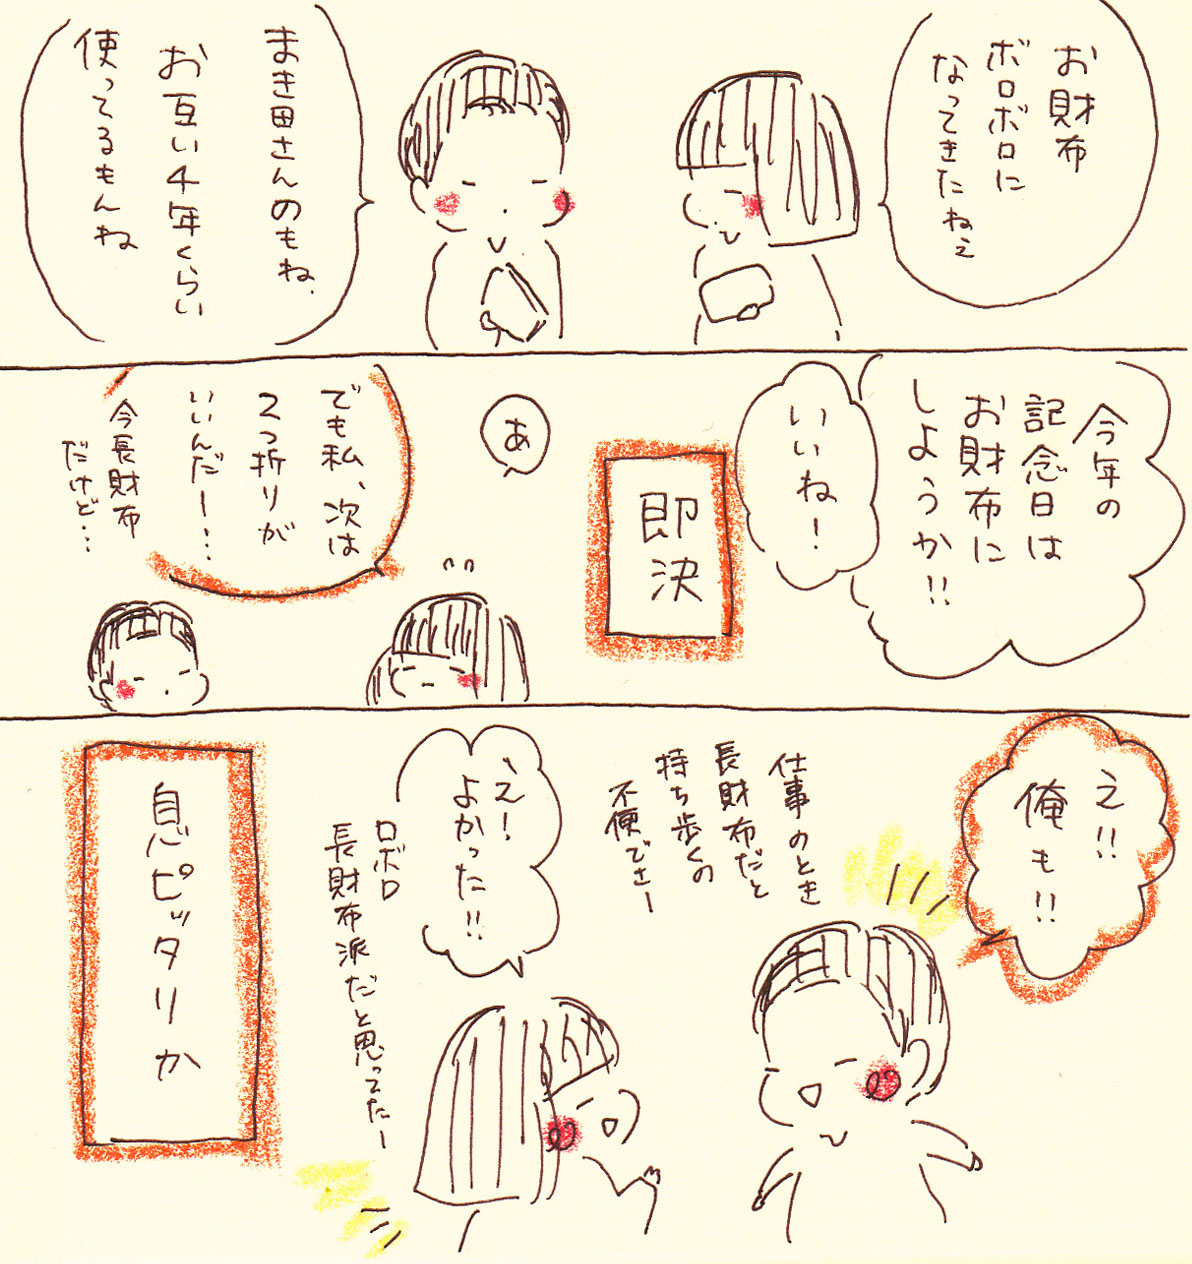 お財布
ボロボロに
なってきたねぇ
まき田さんのもね、
お互い4年くらい
使ってるもんね
今年の
記念日は
お財布に
しようか!!
いいね!
即決
あ
でも私、次は
2つ折りが
いいんだー…
今長財布
だけど…
え!!
俺も!!
仕事のとき
長財布だと
持ち歩くの
不便でさー
え!
よかった!!
ロボロ
長財布派だと思ってたー
息ピッタリか